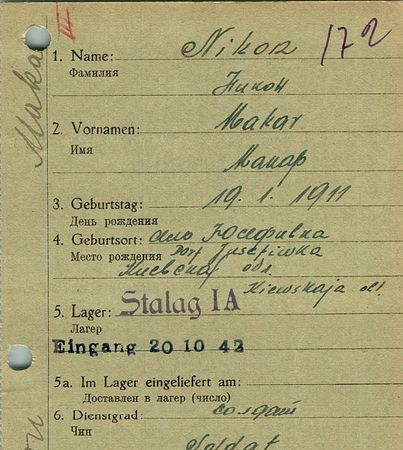 III
172
Maka
1. Name: Nikon
Фамилия
Никон
2. Vornamen: Makar
Имя
Макар
3. Geburtstag: 19. 1. 1911
День рождения
4. Geburtsort: село Юсефивка
Место рождения Dorf Jusefiwka
Киевская обл.
Kiewskaja obl.
5. Lager: Stalag IA
Лагер
Eingang 20 10 42
5a. Im Lager eingeliefert am:
Доставлен в лагер (число)
6. Dienstgrad: солдат
Чин
Soldat